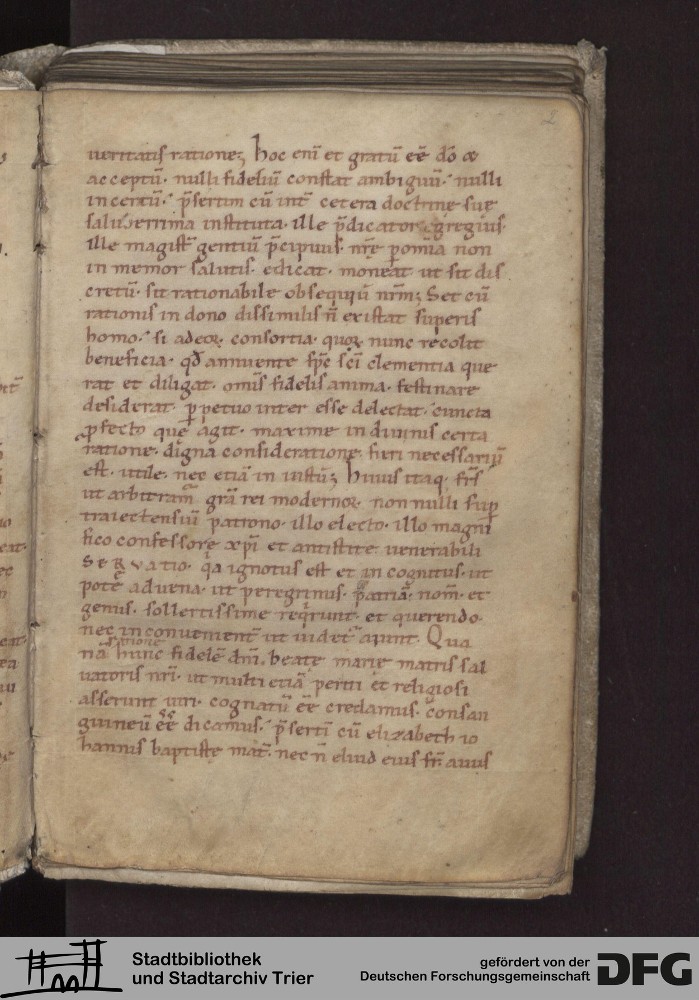 2
ueritatis ratione; hoc eni̅ et gratu̅ ee̅ do̅ &
acceptu̅· nulli fideliu̅ constat ambiguu̅· nulli
incertu̅· p̅sertim cu̅ int̅ cetera doctrine sue
saluberrima instituta· ille p̅dicator egregius·
ille magist̅ gentiu̅ p̅cipuus· nr̅e p omia̅ non
in memor salutis· edicat· moneat ut sit dis
cretu̅· sit rationabile obsequiu̅ nr̅m; Set cu̅
rationis in dono dissimilis n̅ existat superis
homo· si adeoꝝ consortia· quoꝝ nunc recolit
beneficia· qd̅ annuente sp̅c sc̅i clementia que
rat et diligat· omis̅ fidelis anima· festinare
desiderat· ꝑpetuo inter esse delectat· cuncta
ꝓfecto que̅ agit· maxime in diuinis certa
ratione· digna̅ consideratione· fieri necessariu̅
est· utile· nec etia̅ in iustu̅; huius itaq· fr̅s
ut arbitram̅ gra̅ rei modernoꝝ· non nulli sup̅
traiectensiu̅ patrono· illo electo· illo magni
fico confessore xp̅i et antistite uenerabili
SeRVatio· qa ignotus est et in cognitus· ut
pote aduena· ut peregrinus· patria̅· nom̅· et
genus· sollertissime reqrunt· et querendo·
nec inconuenient̅ ut uidet̅ aiunt· Qua
na̅ ratione hunc fidele̅ dn̅i· beate marie matris sal
uatoris nr̅i· ut multi etia̅ periti et religiosi
asserunt uiri· cognatu̅ ee̅ credamus· consan
guineu̅ ee̅ dicamus· p̅serti̅ cu̅ elizabeth io
hannis baptiste mat̅· nec n̅ eliud eius fr̅· auus
Stadtbibliothek
und Stadtarchiv Trier
gefördert von der
Deutschen Forschungsgemeinschaft
DFG